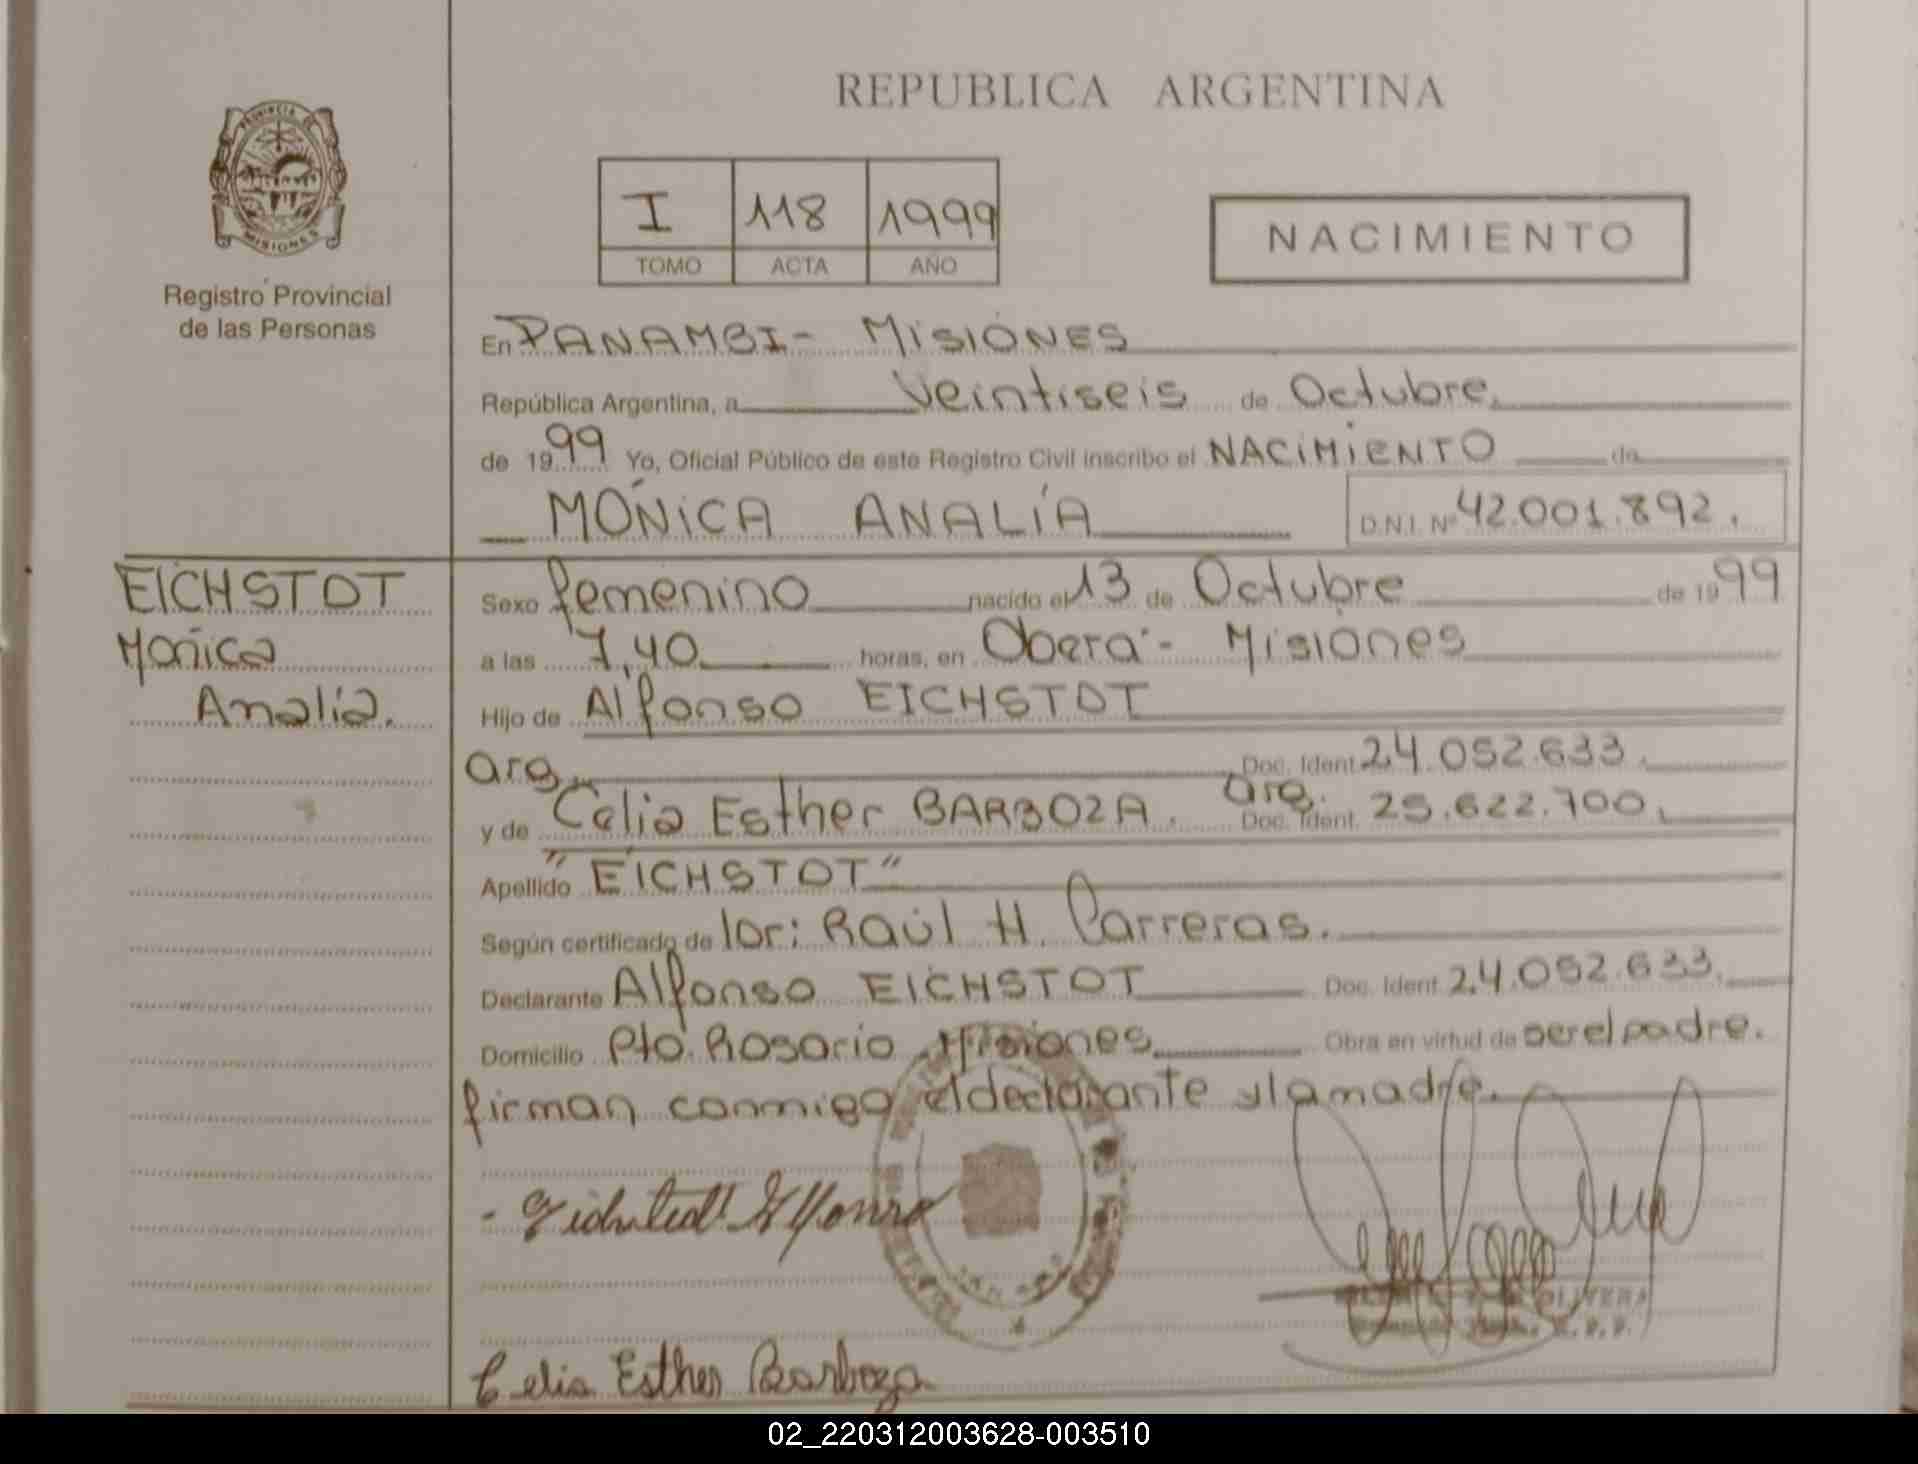 REPUBLICA ARGENTINA
PROVINCIA DE
MISIONES
Registro Provincial
de las Personas
I 118 1999
TOMO ACTA AÑO
NACIMIENTO
En PANAMBI - MISIONES
República Argentina, a Veintiseis de Octubre.
de 1999 Yo, Oficial Público de este Registro Civil inscribo el NACIMIENTO de
MÓNICA ANALÍA D.N.I. Nº 42.001.892.
EICHSTDT
Mónica
Analía.
Sexo femenino nacido el 13 de Octubre de 1999
a las 7,40 horas, en Oberá - Misiones
Hijo de Alfonso EICHSTDT
arg. Doc. Ident. 24.052.633.
y de Celia Esther BARBOZA. arg. Doc. Ident. 25.622.700.
Apellido "EICHSTDT"
Según certificado de Raúl H. Carreras.
Declarante Alfonso EICHSTDT Doc. Ident. 24.052.633.
Domicilio Pto. Rosario Misiones Obra en virtud de ser el padre.
firman conmigo el declarante y la madre.
Alfonso
OLIVERA
Celia Esther Barboza
02_220312003628-003510